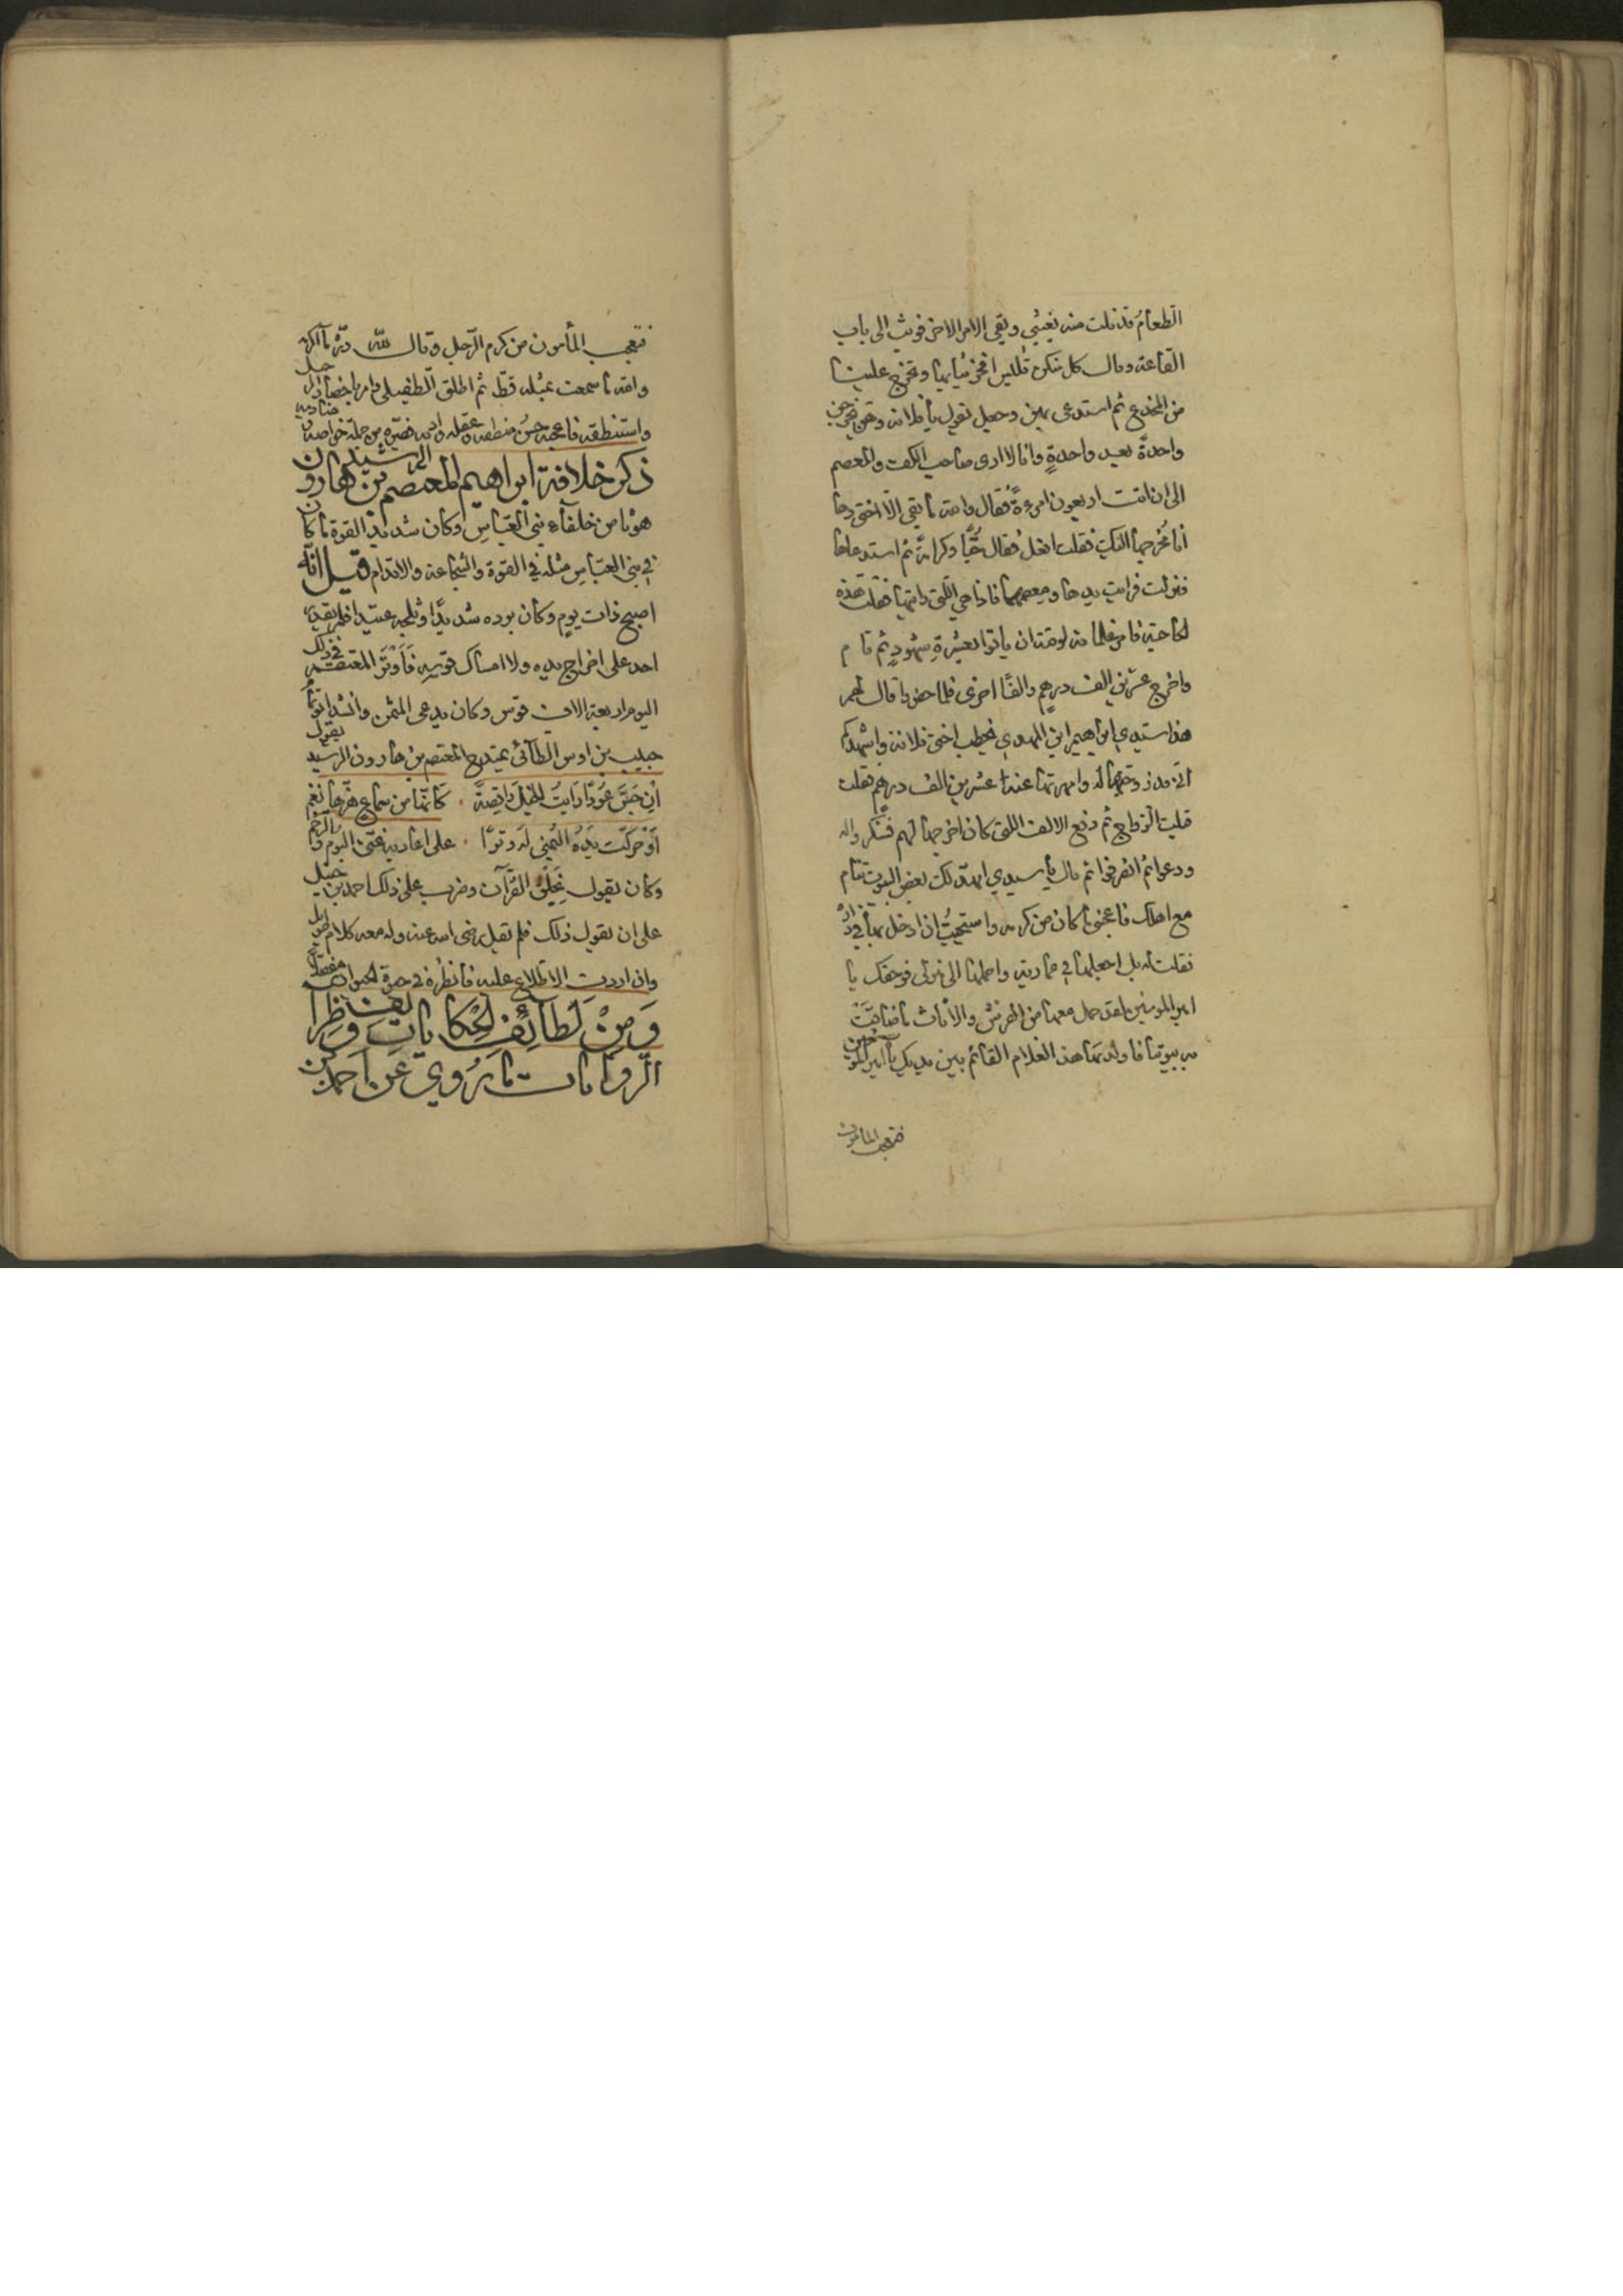 الطعام قد نلت منه بغيتي وبقي الامر الاخر فوثب الى باب
القاعة وقال كل منكن تلبس افخر ثيابها وتخرج علينا
من المخدع ثم استدعى بهن وجعل يقول يا فلانة وهن يخرجن
واحدة بعد واحدة وانا لا ارى صاحب الكف والمعصم
الى ان اتت اربعون امرءة فقال والله ما بقي الا اختي وها
انا مخرجها اليك فقلت افعل فقال حبا وكرامة ثم استدعاها
فنزلت فرايت يدها ومعصمها فاذا هي اللتي رايتها فقلت هذه
الحاجة فامر غلمانه لوقته ان ياتوا بعشرة شهود ثم قام
واخرج عشرين الف درهم والفا اخرى فلما حضروا قال لهم
هذا سيدي ابراهيم ابن المهدي يخطب اختي فلانة واشهدكم
اني قد زوجتها له وامهرتها عنه عشرين الف درهم فقلت
قبلت الزواج ثم دفع الالف اللتي كان اخرجها لهم فشكروا له
ودعوا ثم انصرفوا ثم قال يا سيدي امهد لك بعض البيوت تنام
مع اهلك فاعجبني ما كان من كرمه واستحييت ان ادخل بها في داره
فقلت له بل اجعلها في عمارية واحملها الى منزلي فوحقك يا
امير المومنين لقد حمل معها من الفرش والاثاث ما ضاقت
به بيوتنا فاولدتها هذا الغلام القائم بين يديك يا امير المومنين
فتعجب المامون
فتعجب المأمون من كرم الرجل وقال لله دره ما اكرمه
والله ما سمعت بمثله قط ثم اطلق الطفيلي وامر باحضار الرجل
واستنطقه فاعجبه حسن منطقه وعقله وادبه فصيره من جملة خواصه
ذكر خلافة ابراهيم المعتصم بن هارون الرشيد
هو ثامن خلفآء بني العباس وكان شديد القوة ما كان
في بني العباس مثله في القوة والشجاعة والاقدام قيل انه
اصبح ذات يوم وكان برده شديدا وثلجه عتيدا فلم يقدر
احد على اخراج يده ولا امساك قوسه فاوتر المعتصم في ذلك
اليوم اربعة الاف قوس وكان يدعى المثمن وانشد ابو تمام
حبيب بن اوس الطآئي يمتدح المعتصم بن هارون الرشيد يقول
ان جس عودا رايت الخيل راقصة . كانما من سماع هزها نغم
او حركت يده اليمنى له وترا . على اعاديه غنى البوم والرخم
وكان يقول بخلق القرآن وضرب على ذلك احمد بن حنبل
على ان يقول ذلك فلم يقبل رضى الله عنه وله معه كلام طويل
وان اردت الاطلاع عليه فانظره في حيوة الحيوان مفصلا
ومن لطآئف الحكايات وظرائف
الروايات ما يروي عن احمد بن